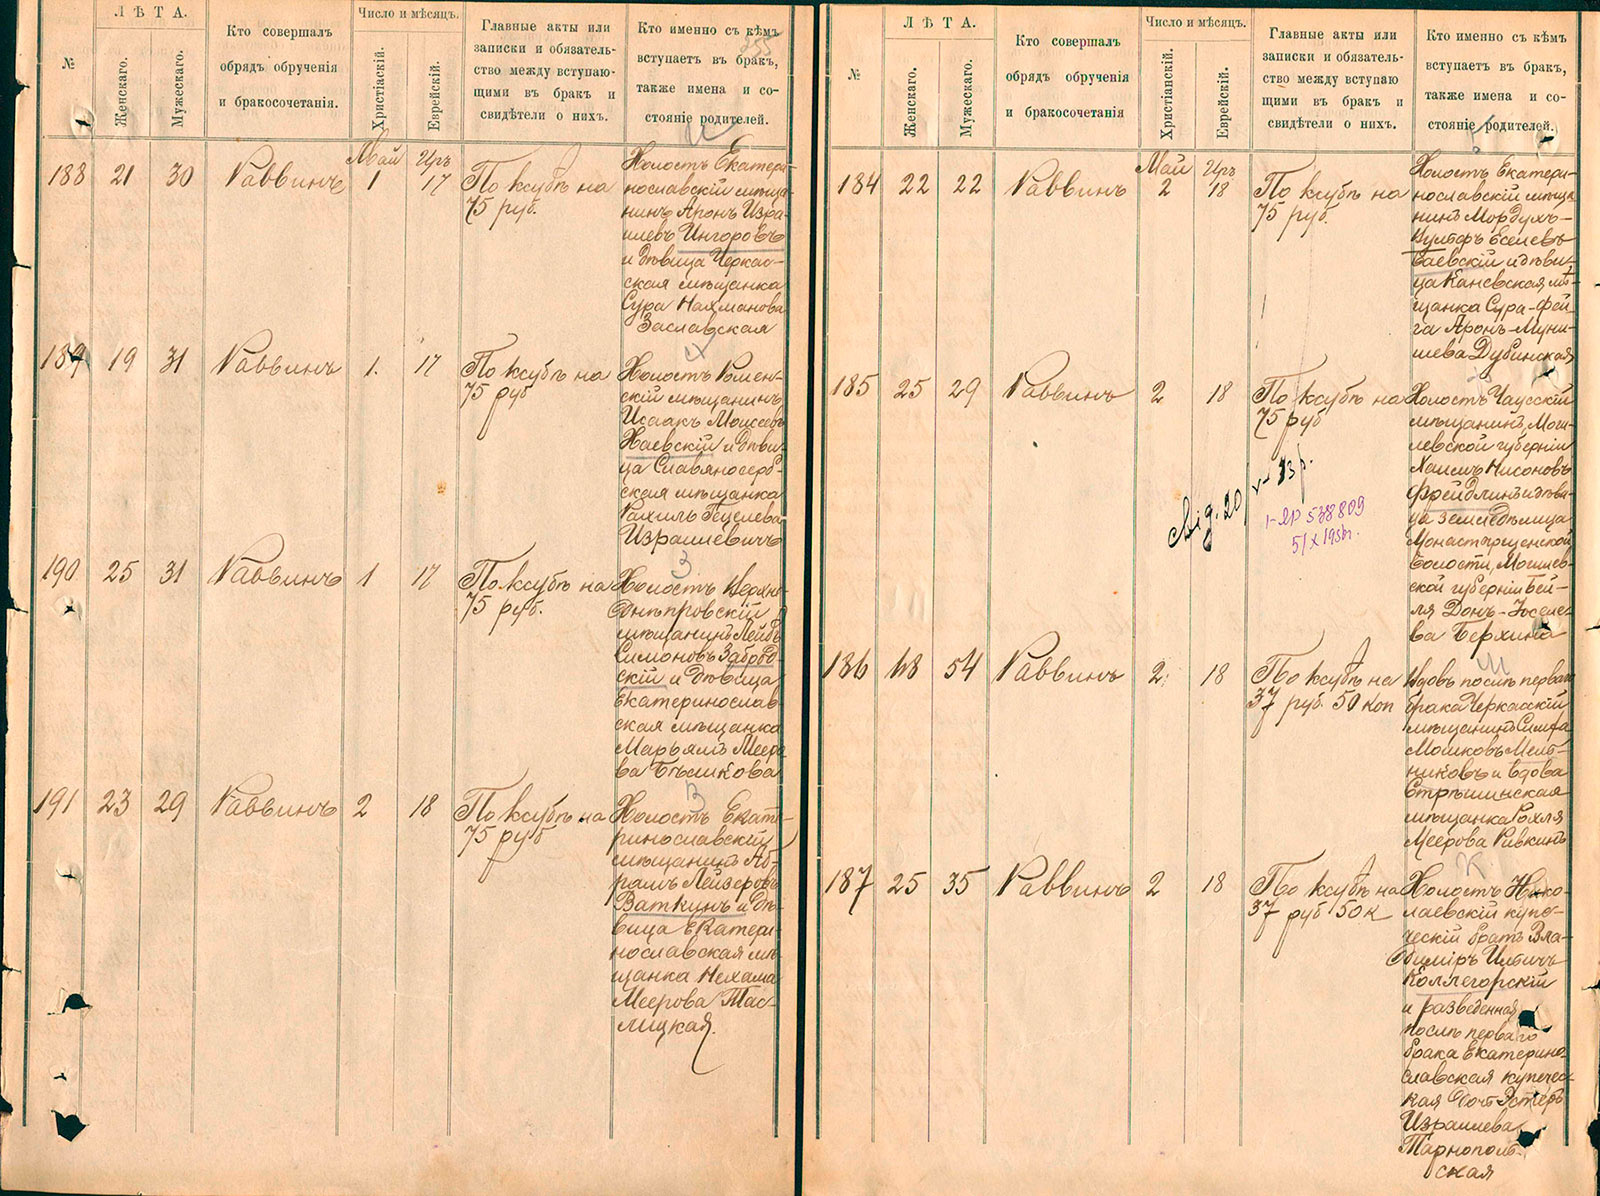 №
ЛѢТА.
Женскаго.
Мужескаго.
Кто совершалъ
обрядъ обрученія
и бракосочетанія.
Число и мѣсяцъ.
Христіаскій.
Еврейскій.
Главные акты или
записки и обязатель-
ство между вступаю-
щими въ бракъ и
свидѣтели о нихъ.
Кто именно съ кѣмъ
вступаетъ въ бракъ,
также имена и со-
стояніе родителей.
255
188 21 30 Раввинъ
Май 1
Иръ 17
По ксубѣ на
75 руб.
Холостъ Екатери-
нославскій мѣща-
нинъ Аронъ Изра-
илевъ Ингоровъ
и дѣвица Черкас-
ская мѣщанка
Сура Нахманова
Заславская
189 19 31 Раввинъ 1. 17
По ксубѣ на
75 руб
Холостъ Ромен-
скій мѣщанинъ
Исаакъ Моисеевъ
Хаевскій и дѣви-
ца Славяносерб-
ская мѣщанка
Рахиль Гецелева
Израилевичъ
190 25 31 Раввинъ 1 17
По ксубѣ на
75 руб.
З
Холостъ Верхне-
Днѣпровскій
мѣщанинъ Лейбъ
Симоновъ Заброд-
скій и дѣвица
Екатеринослав-
ская мѣщанка
Марьямъ Меера-
ва Бѣликова
191 23 29 Раввинъ 2 18
По ксубѣ на
75 руб
В
Холостъ Екате-
ринославскій
мѣщанинъ Аб-
рамъ Лейзеровъ
Ваткинъ и дѣ-
вица Екатери-
нославская мѣ-
щанка Нехама
Меерова Тас-
лицкая.
№
ЛѢТА.
Женскаго.
Мужескаго.
Кто совершалъ
обрядъ обрученія
и бракосочетанія
Число и мѣсяцъ.
Христіанскій.
Еврейскій.
Главные акты или
записки и обязатель-
ство между вступаю
щими въ бракъ и
свидѣтели о нихъ.
Кто именно съ кѣмъ
вступаетъ въ бракъ,
также имена и со-
стояніе родителей.
184 22 22 Раввинъ
Май 2
Иръ 18
По ксубѣ на
75 руб.
Холостъ Екатери-
нославскій мѣща
нинъ Мордухъ-
Вульфъ Еселевъ
Баевскій и дѣви-
ца Каневская мѣ-
щанка Сура-Фей-
га Аронъ-Муни-
шева Дубинская
185 25 29 Раввинъ 2 18
По ксубѣ на
75 руб
Холостъ Чаусскій
мѣщанинъ, Моги-
левской губерніи
Хаимъ Нисоновъ
Фрейдлинъ и дѣви-
ца земледѣлица
Монастырщенской
волости, Могилев-
ской губерніи Бей-
ля Донъ-Іоселе-
ва Берхина
538809
5/X 195
186 48 54 Раввинъ 2. 18
По ксубѣ на
37 руб. 50 коп
М
Вдовъ послѣ перваго
брака Черкасскій
мѣщанинъ Симха
Мошковъ Мель-
никовъ и вдова
Стрѣшинская
мѣщанка Рохля
Меерова Ривкинъ
187 25 35 Раввинъ 2 18
По ксубѣ на
37 руб 50 к
К.
Холостъ Нико-
лаевскій купе-
ческій братъ Вла-
димiръ Ильичъ
Коллегорскій
и разведенная
послѣ перваго
брака Екатерино-
славская купечес-
кая дочь Эстеръ
Израилева
Тарнополь-
ская